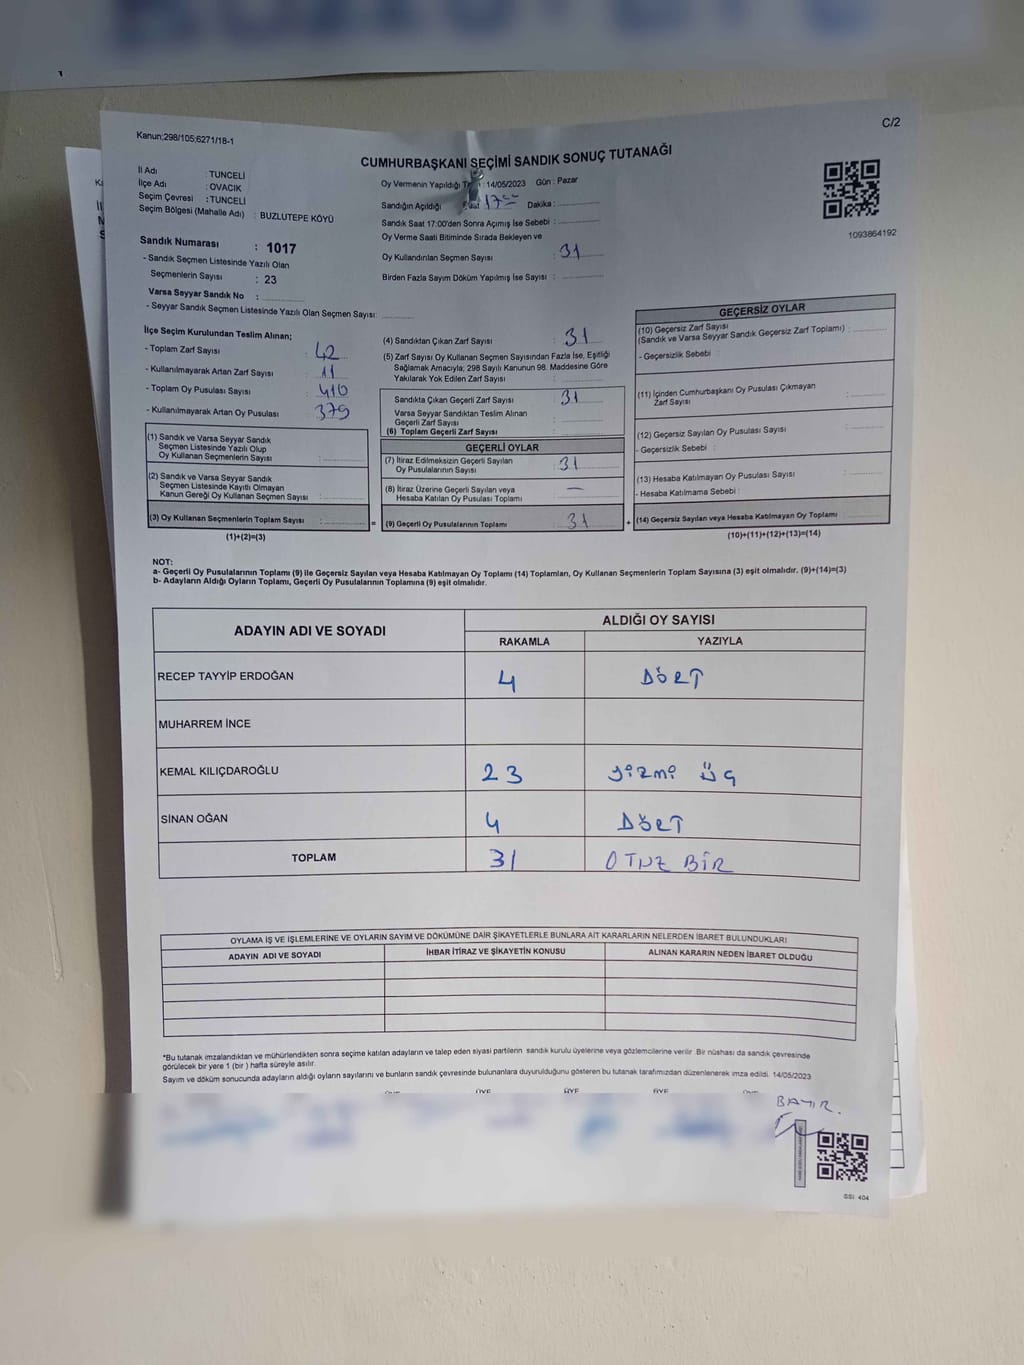 C/2
Kanun;298/105;6271/18-1
CUMHURBAŞKANI SEÇİMİ SANDIK SONUÇ TUTANAĞI
İl Adı : TUNCELİ
İlçe Adı : OVACIK
Seçim Çevresi : TUNCELİ
Seçim Bölgesi (Mahalle Adı) : BUZLUTEPE KÖYÜ
Sandık Numarası : 1017
- Sandık Seçmen Listesinde Yazılı Olan
Seçmenlerin Sayısı : 23
Varsa Seyyar Sandık No :
- Seyyar Sandık Seçmen Listesinde Yazılı Olan Seçmen Sayısı:
Oy Vermenin Yapıldığı : 14/05/2023 Gün : Pazar
Sandığın Açıldığı 17 Dakika :
Sandık Saat 17:00'den Sonra Açımış İse Sebebi :
Oy Verme Saati Bitiminde Sırada Bekleyen ve
Oy Kullandırılan Seçmen Sayısı : 31
Birden Fazla Sayım Döküm Yapılmış İse Sayısı :
1093864192
İlçe Seçim Kurulundan Teslim Alınan;
- Toplam Zarf Sayısı : 42
- Kullanılmayarak Artan Zarf Sayısı : 11
- Toplam Oy Pusulası Sayısı : 410
- Kullanılmayarak Artan Oy Pusulası : 379
(1) Sandık ve Varsa Seyyar Sandık
Seçmen Listesinde Yazılı Olup
Oy Kullanan Seçmenlerin Sayısı :
(2) Sandık ve Varsa Seyyar Sandık
Seçmen Listesinde Kayıtlı Olmayan
Kanun Gereği Oy Kullanan Seçmen Sayısı :
(3) Oy Kullanan Seçmenlerin Toplam Sayısı : =
(1)+(2)=(3)
(4) Sandıktan Çıkan Zarf Sayısı : 31
(5) Zarf Sayısı Oy Kullanan Seçmen Sayısından Fazla İse, Eşitliği
Sağlamak Amacıyla; 298 Sayılı Kanunun 98. Maddesine Göre
Yakılarak Yok Edilen Zarf Sayısı :
Sandıkta Çıkan Geçerli Zarf Sayısı : 31
Varsa Seyyar Sandıktan Teslim Alınan
Geçerli Zarf Sayısı :
(6) Toplam Geçerli Zarf Sayısı :
GEÇERLİ OYLAR
(7) İtiraz Edilmeksizin Geçerli Sayılan
Oy Pusulalarının Sayısı : 31
(8) İtiraz Üzerine Geçerli Sayılan veya
Hesaba Katılan Oy Pusulası Toplamı : —
(9) Geçerli Oy Pusulalarının Toplamı : 31 +
GEÇERSİZ OYLAR
(10) Geçersiz Zarf Sayısı
(Sandık ve Varsa Seyyar Sandık Geçersiz Zarf Toplamı) :
- Geçersizlik Sebebi :
(11) İçinden Cumhurbaşkanı Oy Pusulası Çıkmayan
Zarf Sayısı :
(12) Geçersiz Sayılan Oy Pusulası Sayısı :
- Geçersizlik Sebebi :
(13) Hesaba Katılmayan Oy Pusulası Sayısı :
- Hesaba Katılmama Sebebi :
(14) Geçersiz Sayılan veya Hesaba Katılmayan Oy Toplamı :
(10)+(11)+(12)+(13)=(14)
NOT:
a- Geçerli Oy Pusulalarının Toplamı (9) ile Geçersiz Sayılan veya Hesaba Katılmayan Oy Toplamı (14) Toplamları, Oy Kullanan Seçmenlerin Toplam Sayısına (3) eşit olmalıdır. (9)+(14)=(3)
b- Adayların Aldığı Oyların Toplamı, Geçerli Oy Pusulalarının Toplamına (9) eşit olmalıdır.
ADAYIN ADI VE SOYADI
ALDIĞI OY SAYISI
RAKAMLA YAZIYLA
RECEP TAYYİP ERDOĞAN 4 DÖRT
MUHARREM İNCE
KEMAL KILIÇDAROĞLU 23 yirmi üç
SİNAN OĞAN 4 DÖRT
TOPLAM 31 OTUZ BİR
OYLAMA İŞ VE İŞLEMLERİNE VE OYLARIN SAYIM VE DÖKÜMÜNE DAİR ŞİKAYETLERLE BUNLARA AİT KARARLARIN NELERDEN İBARET BULUNDUKLARI
ADAYIN ADI VE SOYADI İHBAR İTİRAZ VE ŞİKAYETİN KONUSU ALINAN KARARIN NEDEN İBARET OLDUĞU
*Bu tutanak imzalandıktan ve mühürlendikten sonra seçime katılan adayların ve talep eden siyasi partilerin sandık kurulu üyelerine veya gözlemcilerine verilir. Bir nüshası da sandık çevresinde
görülecek bir yere 1 (bir ) hafta süreyle asılır.
Sayım ve döküm sonucunda adayların aldığı oyların sayılarını ve bunların sandık çevresinde bulunanlara duyurulduğunu gösteren bu tutanak tarafımızdan düzenlenerek imza edildi. 14/05/2023
ÜYE ÜYE ÜYE
GSI 404